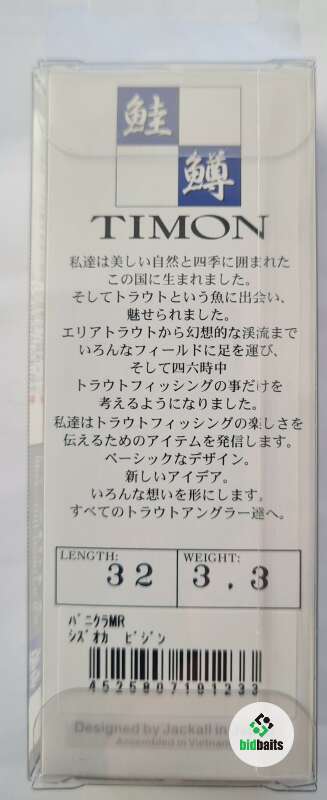 鮭
鱒
TIMON
私達は美しい自然と四季に囲まれた
この国に生まれました。
そしてトラウトという魚に出会い、
魅せられました。
エリアトラウトから幻想的な渓流まで
いろんなフィールドに足を運び、
そして四六時中
トラウトフィッシングの事だけを
考えるようになりました。
私達はトラウトフィッシングの楽しさを
伝えるためのアイテムを発信します。
ベーシックなデザイン。
新しいアイデア。
いろんな想いを形にします。
すべてのトラウトアングラー達へ。
LENGTH: WEIGHT:
32 3.3
パニクラMR
シズオカ ビジン
4525807191233
Designed by Jackall in
Assembled in Vietnam
bidbaits